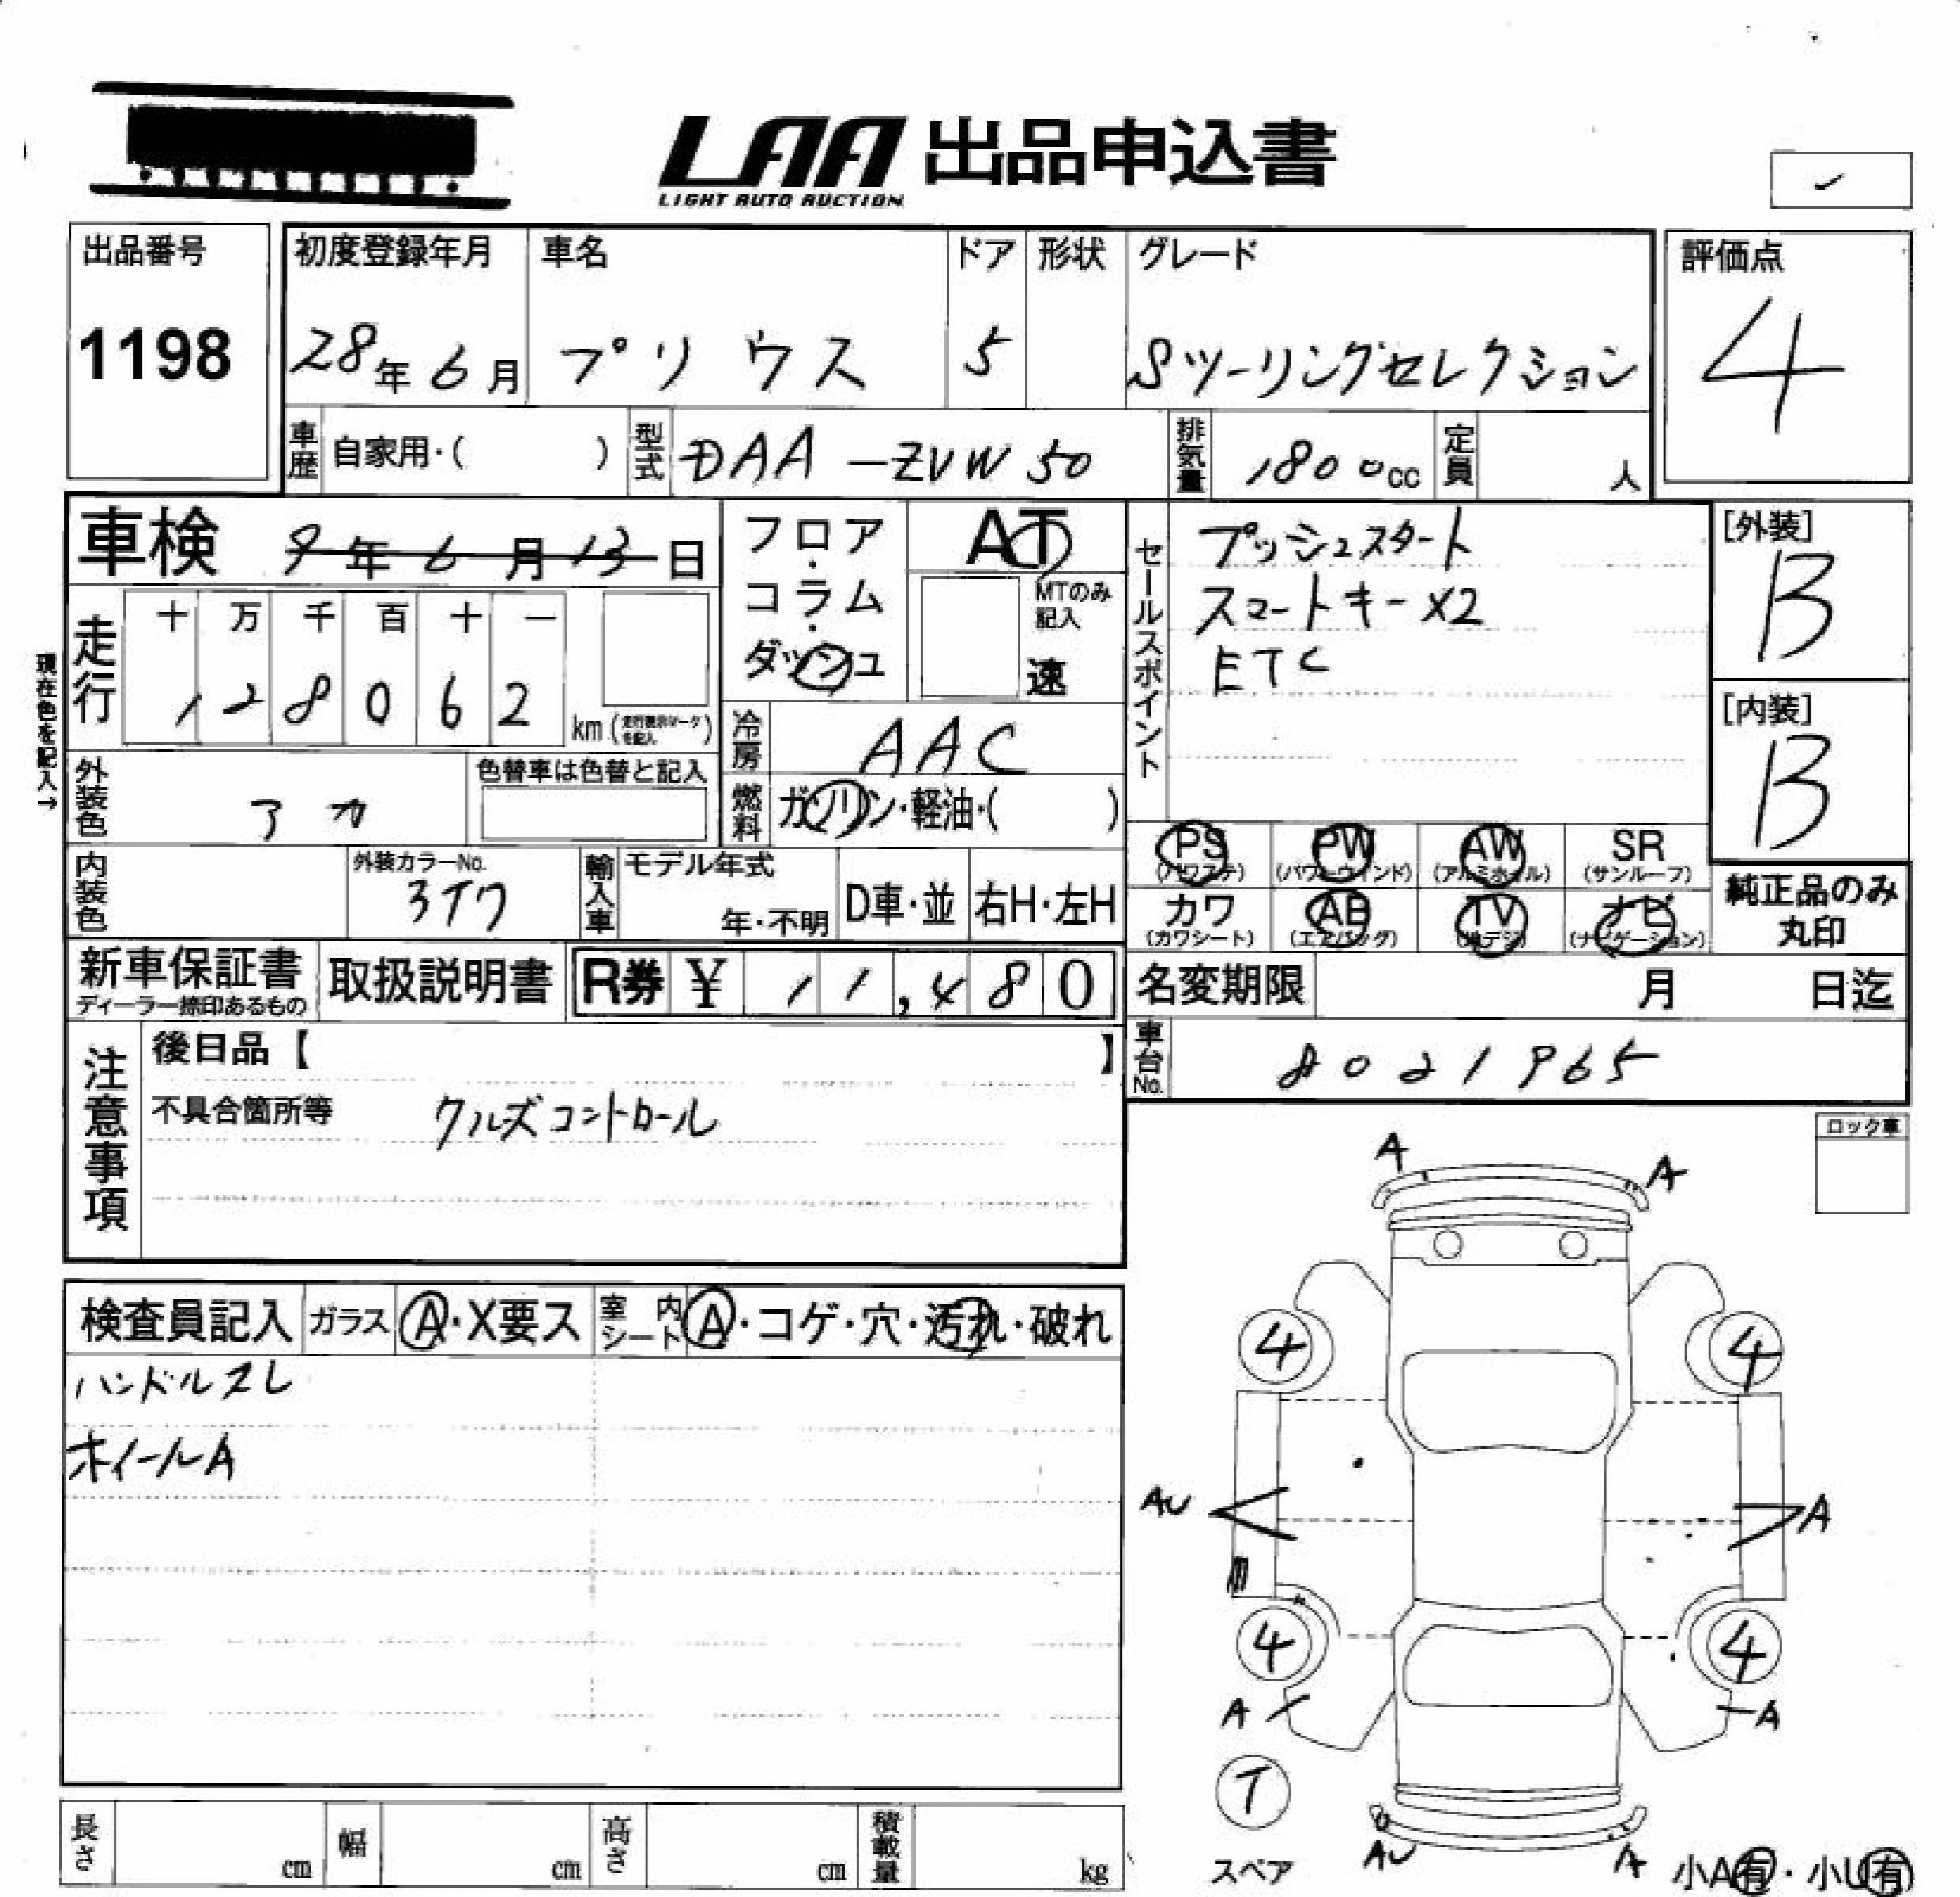 LAA 出品申込書
LIGHT AUTO AUCTION
出品番号
1198
初度登録年月
28年6月
車名
プリウス
ドア
5
形状
グレード
Sツーリングセレクション
評価点
4
車歴 自家用・( )
型式 DAA-ZVW50
排気量 1800cc
定員 人
車検 9年6月13日
フロア・コラム・ダッシュ
AT
MTのみ記入
速
セールスポイント
プッシュスタート
スマートキーX2
ETC
[外装]
B
[内装]
B
現在色を記入→
走行 十 万 千 百 十 一
128062 km (走行表示マークを記入)
冷房 AAC
外装色 アカ
色替車は色替と記入
燃料 ガソリン・軽油・( )
PS (パワステ) PW (パワーウィンド) AW (アルミホイル) SR (サンルーフ)
カワ (カワシート) AB (エアバッグ) TV (地デジ) ナビ (ナビゲーション)
純正品のみ丸印
内装色
外装カラーNo.
3T7
輸入車 モデル年式
年・不明
D車・並
右H・左H
新車保証書
ディーラー捺印あるもの
取扱説明書
R券 ¥ 11,480
名変期限 月 日迄
車台No. 8021965
注意事項
後日品【 】
不具合箇所等 クルズコントロール
ロック車
検査員記入 ガラス A・X要ス 室内シート A・コゲ・穴・汚れ・破れ
ハンドルスレ
ホイールA
A A
4 4
AU A
4 4
A A
T
スペア
AU A
小A有・小U有
長さ cm 幅 cm 高さ cm 積載量 kg